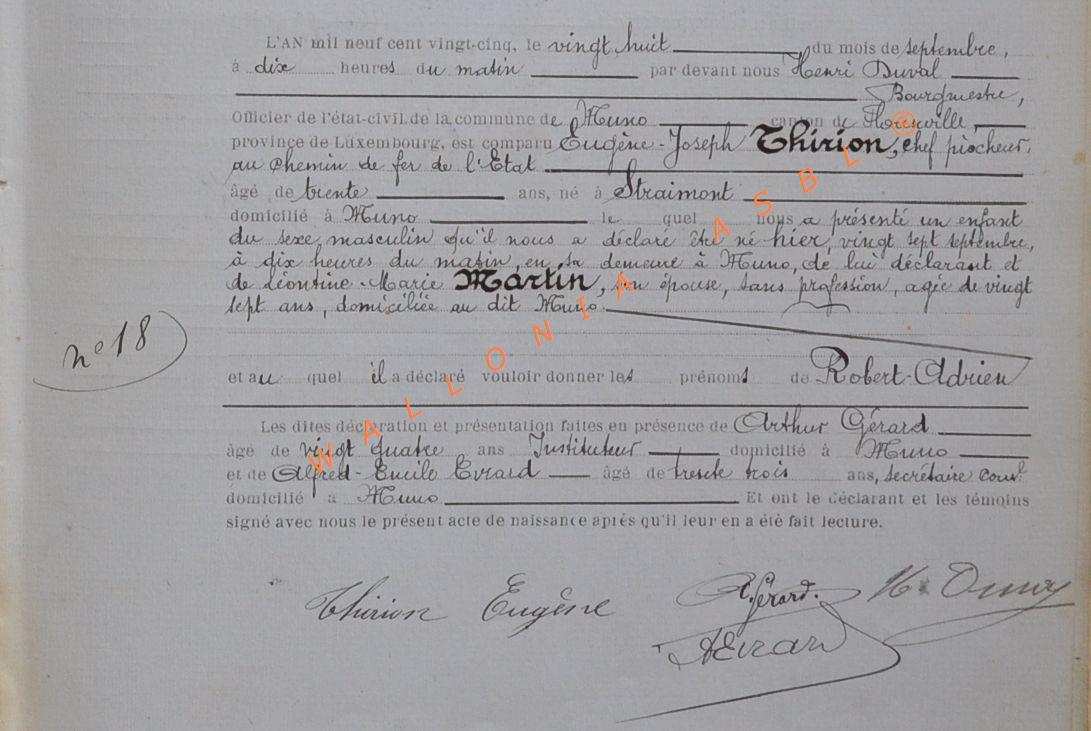 L'AN mil neuf cent vingt-cinq, le vingt huit du mois de septembre,
à dix heures du matin par devant nous Henri Duval
Bourgmestre,
Officier de l'état-civil de la commune de Muno canton de Florenville,
province de Luxembourg, est comparu Eugène-Joseph Thirion, chef piocheur
au chemin de fer de l'État
âgé de trente ans, né à Straimont
domicilié à Muno le quel nous a présenté un enfant
du sexe masculin qu'il nous a déclaré être né hier, vingt sept septembre,
à dix heures du matin, en sa demeure à Muno, de lui déclarant et
de Léontine-Marie Martin, son épouse, sans profession, agée de vingt
sept ans, domiciliée au dit Muno.
n° 18
et au quel il a déclaré vouloir donner les prénoms de Robert-Adrien
Les dites déclaration et présentation faites en présence de Arthur Gérard
âgé de vingt quatre ans Instituteur domicilié à Muno
et de Alfred-Lucile Evrard âgé de trente trois ans, secrétaire coml
domicilié à Muno Et ont le déclarant et les témoins
signé avec nous le présent acte de naissance après qu'il leur en a été fait lecture.
Thirion Eugène A. Gérard. H. Duval
AEvrard
WALLONIA ASBL @